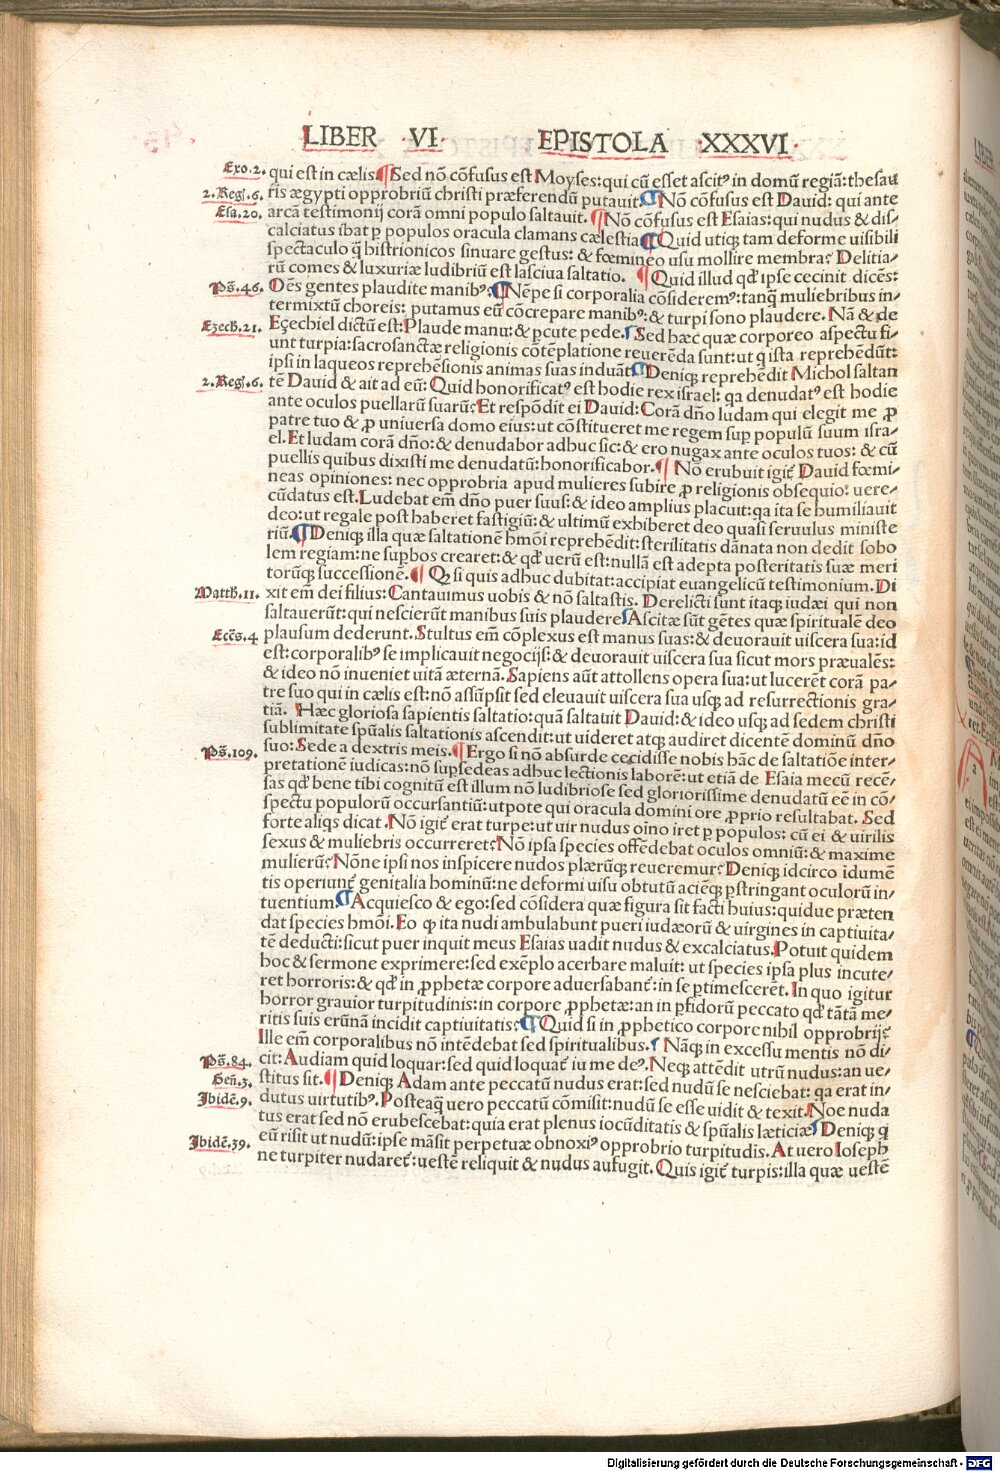 LIBER VI EPISTOLA XXXVI
Exo.2. qui est in cælis.¶Sed nõ cõfusus est Moyses:qui cũ esset ascitꝰ in domũ regiã:thesau
2.Reg.6. ris ægypti opprobriũ christi præferendũ putauit.¶Nõ cõfusus est Dauid: qui ante
Esa.20. arcã testimonij corã omni populo saltauit. ¶Nõ cõfusus est Esaias:qui nudus & dis/
calciatus ibat ꝑ populos oracula clamans cælestia¶Quid utiqꝫ tam deforme uisibili
spectaculo q̃ histrionicos sinuare gestus: & fœmineo usu mollire membra? Delitia/
rũ comes & luxuriæ ludibriũ est lasciua saltatio. ¶Quid illud qđ ipse cecinit dicẽs:
Ps̃.46. Oẽs gentes plaudite manibꝰ:¶Nẽpe si corporalia cõsideremꝰ:tanq̃ muliebribus in/
termixtũ choreis: putamus eũ cõcrepare manibꝰ:& turpi sono plaudere. Nã & de
Ezech.21. Ezechiel dictũ est:Plaude manu:& ꝑcute pede.¶Sed hæc quæ corporeo aspectu fi/
unt turpia:sacrosanctæ religionis cõtẽplatione reuerẽda sunt:ut q ista reprehẽdũt:
ipsi in laqueos reprehẽsionis animas suas induãt¶Deniqꝫ reprehẽdit Michol saltan
2.Reg.6. tẽ Dauid & ait ad eũ: Quid honorificatꝰ est hodie rex israel: qa denudatꝰ est hodie
ante oculos puellarũ suarũ? Et respõdit ei Dauid: Corã dño ludam qui elegit me ꝓ
patre tuo & ꝓ uniuersa domo eius:ut cõstitueret me regem sup populũ suum isra/
el.Et ludam corã dño:& denudabor adhuc sic:& ero nugax ante oculos tuos: & cũ
puellis quibus dixisti me denudatũ:honorificabor.¶ Nõ erubuit igit̃ Dauid fœmi/
neas opiniones: nec opprobria apud mulieres subire ꝓ religionis obsequio: uere/
cũdatus est.Ludebat em̃ dño puer suus:& ideo amplius placuit:qa ita se humiliauit
deo:ut regale post haberet fastigiũ:& ultimũ exhiberet deo quasi seruulus ministe
riũ.¶Deniqꝫ illa quæ saltationẽ hm̃oi reprehẽdit:sterilitatis dãnata non dedit sobo
lem regiam:ne supbos crearet:& qđ uerũ est:nullã est adepta posteritatis suæ meri
torũqꝫ successionẽ.¶ Qꝫ si quis adhuc dubitat:accipiat euangelicũ testimonium.Di
Matth.11. xit em̃ dei filius:Cantauimus uobis & nõ saltastis. Derelicti sunt itaqꝫ iudæi qui non
saltauerũt:qui nescierũt manibus suis plaudere¶Ascitæ sũt gẽtes quæ spiritualẽ deo
Ecc̃s.4 plausum dederunt.Stultus em̃ cõplexus est manus suas:& deuorauit uiscera sua:id
est:corporalibꝰ se implicauit negocijs:& deuorauit uiscera sua sicut mors præualẽs:
& ideo nõ inueniet uitã æternã.Sapiens aũt attollens opera sua:ut lucerẽt corã pa/
tre suo qui in cælis est:nõ assũpsit sed eleuauit uiscera sua usqꝫ ad resurrectionis gra/
tiã. Hæc gloriosa sapientis saltatio:quã saltauit Dauid:& ideo usqꝫ ad sedem christi
sublimitate sp̃ualis saltationis ascendit:ut uideret atqꝫ audiret dicentẽ dominũ dño
Ps̃.109. suo:Sede a dextris meis.¶Ergo si nõ absurde cecidisse nobis hãc de saltatiõe inter/
pretationẽ iudicas:nõ supsedeas adhuc lectionis laborẽ:ut etiã de Esaia mecũ recẽ/
sas qđ bene tibi cognitũ est illum nõ ludibriose sed gloriorissime denudatũ eẽ in cõ/
spectu populorũ occursantiũ:utpote qui oracula domini ore ꝓprio resultabat. Sed
forte aliqs dicat.Nõ igit̃ erat turpe:ut uir nudus oĩno iret ꝑ populos: cũ ei & uirilis
sexus & muliebris occurreret?Nõ ipsa species offẽdebat oculos omniũ:& maxime
mulierũ?Nõne ipsi nos inspicere nudos plærũqꝫ reueremur?Deniqꝫ idcirco idumẽ
tis operiunt̃ genitalia hominũ:ne deformi uisu obtutũ aciẽqꝫ pstringant oculorũ in/
tuentium.¶Acquiesco & ego:sed cõsidera quæ figura sit facti huius:quidue præten
dat species hm̃oi. Eo ꝙ ita nudi ambulabunt pueri iudæorũ & uirgines in captiuita/
tẽ deducti:sicut puer inquit meus Esaias uadit nudus & excalciatus.Potuit quidem
hoc & sermone exprimere:sed exẽplo acerbare maluit: ut species ipsa plus incute/
ret horroris:& qđ in ꝓphetæ corpore aduersabant̃:in se ptimescerẽt.In quo igitur
horror grauior turpitudinis:in corpore ꝓphetæ:an in pfidorũ peccato qđ tãtã me/
ritis suis erũnã incidit captiuitatis?¶Quid si in ꝓphetico corpore nihil opprobrij?
Ille em̃ corporalibus nõ intẽdebat sed spiritualibus.¶ Nãqꝫ in excessu mentis nõ di/
Ps̃.84. cit:Audiam quid loquar:sed quid loquat̃ iu me deꝰ.Necqꝫ attẽdit utrũ nudus:an ue/
Geñ.3. stitus sit.¶Deniqꝫ Adam ante peccatũ nudus erat:sed nudũ se nesciebat: qa erat in/
Ibidẽ.9. dutus uirtutibꝰ.Posteaqꝫ uero peccatũ cõmisit:nudũ se esse uidit & texit.Noe nuda
tus erat sed nõ erubescebat:quia erat plenus iocũditatis & sp̃ualis læticiæ¶Deniqꝫ q
eũ risit ut nudũ:ipse mãsit perpetuæ obnoxiꝰ opprobrio turpitudis. At uero Ioseph
Ibidẽ.39. ne turpiter nudaret̃:uestẽ reliquit & nudus aufugit.Quis igit̃ turpis:illa quæ uestẽ
Digitalisierung gefördert durch die Deutsche Forschungsgemeinschaft - DFG